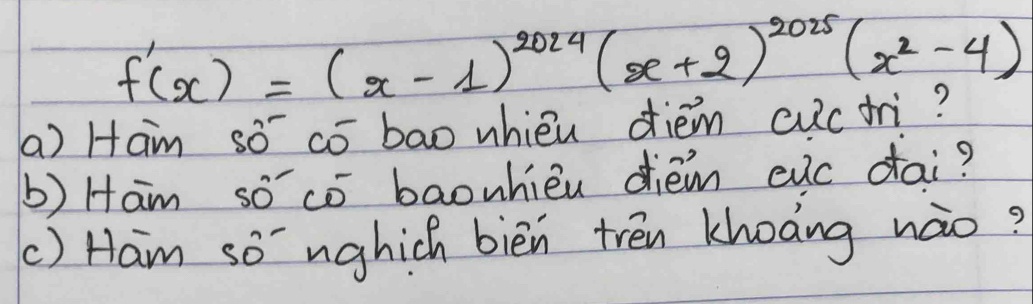 f'(x) = (x - 1)^2024 (x + 2)^2025 (x² - 4)
a) Hàm số có bao nhiêu điểm cực trị ?
b) Hàm số có bao nhiêu điểm cực đại ?
c) Hàm số nghịch biến trên khoảng nào ?